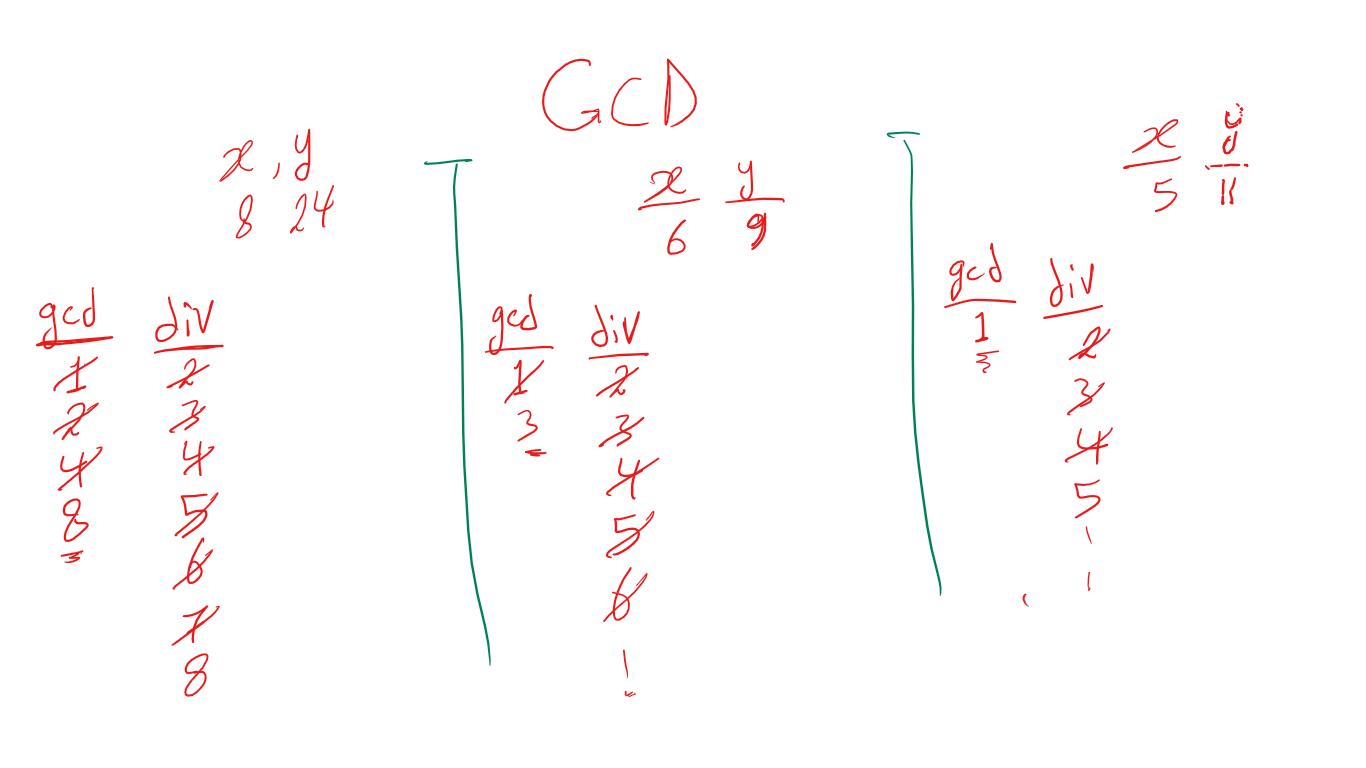 GCD
x , y
8 24
gcd div
1 2
2 3
4 4
8 5
6
7
8
x y
6 9
gcd div
1 2
3 3
4
5
6
x y
5 11
gcd div
1 2
3
4
5